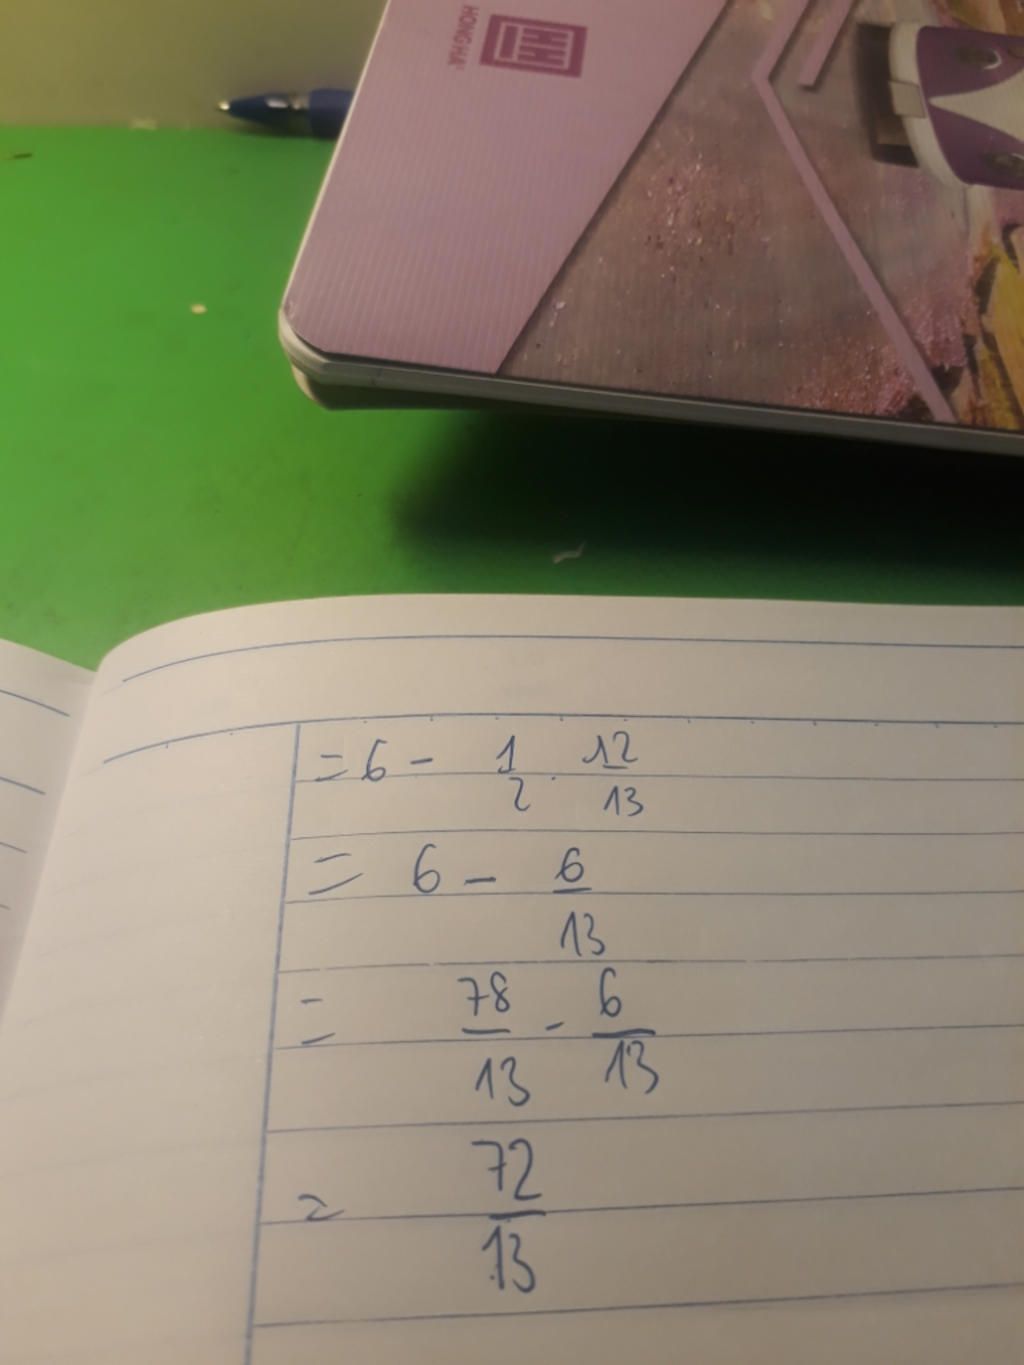 HONG HA
= 6 - 1/2 . 12/13
= 6 - 6/13
= 78/13 - 6/13
= 72/13